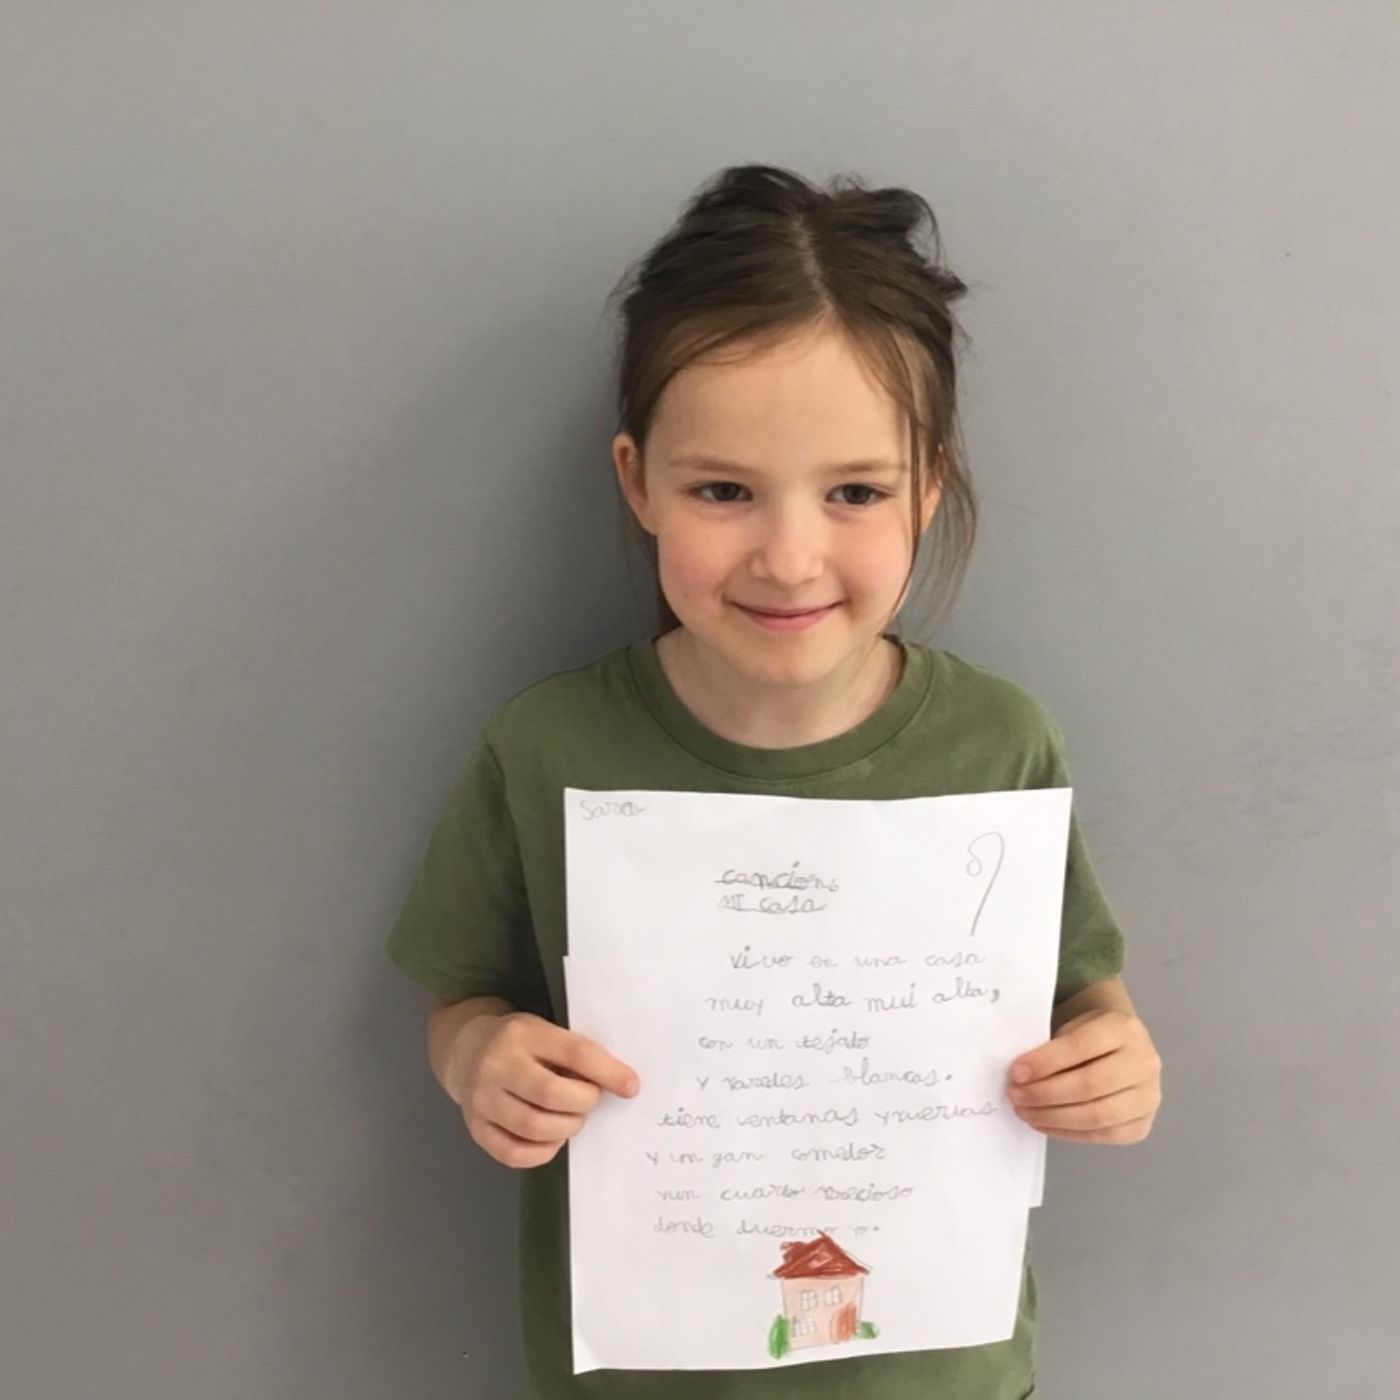 Sara
canción
MI casa
vivo en una casa
muy alta mui alta,
con un tejado
y paredes blancas.
tiene ventanas y puertas
y un gan comedor
y un cuarto precioso
donde duermo